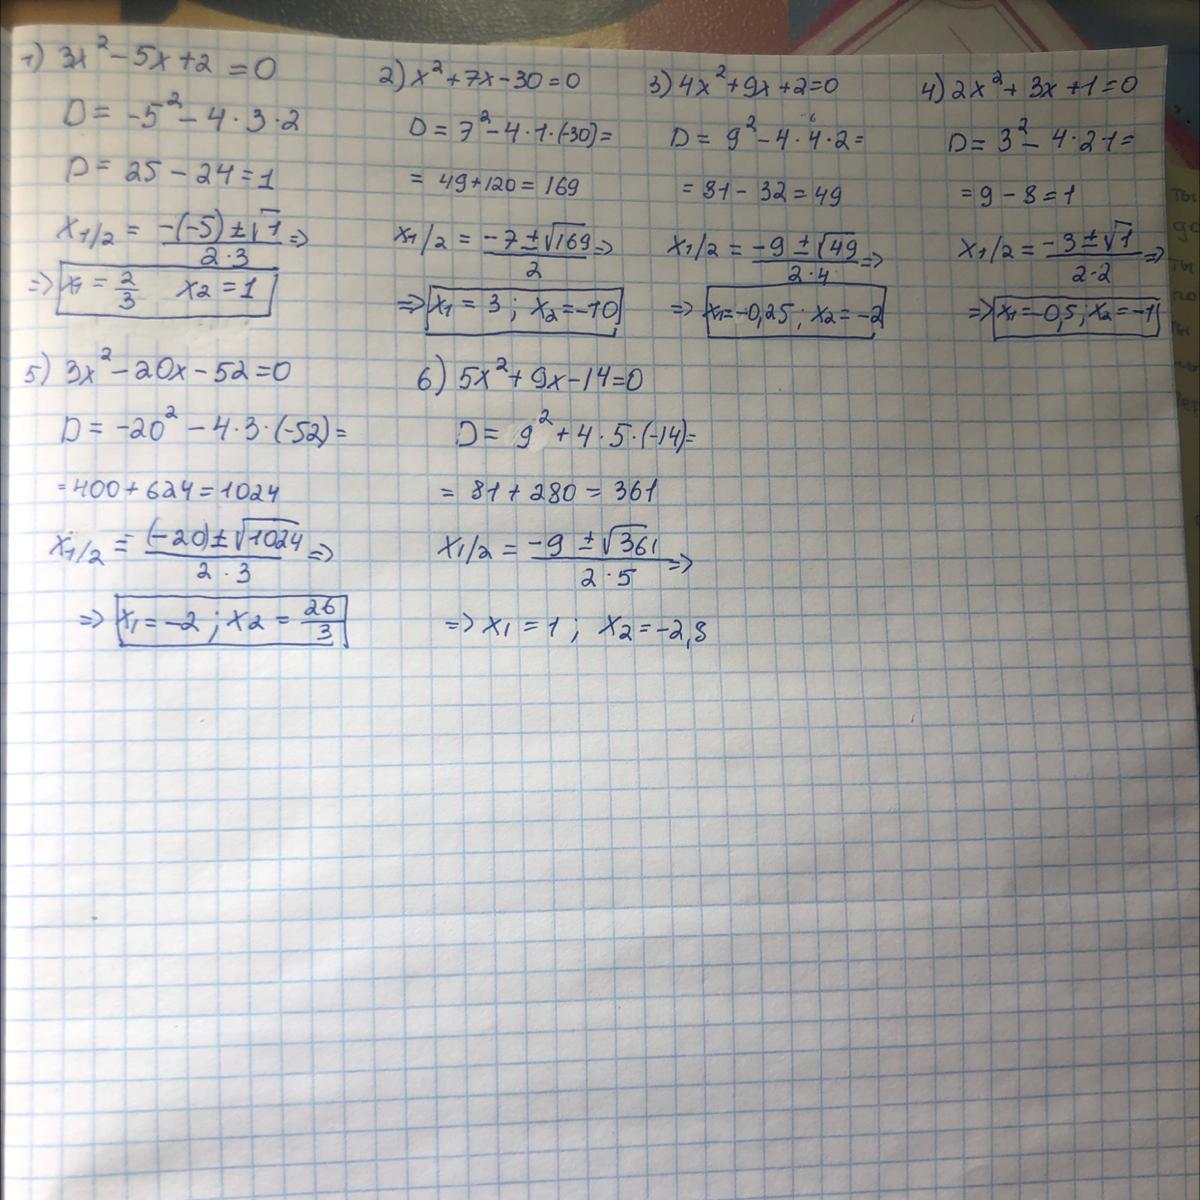 1) 3x² - 5x + 2 = 0
D = -5² - 4 · 3 · 2
D = 25 - 24 = 1
x1/2 = -(-5) ± √1 / 2 · 3 =>
=> x1 = 2/3 x2 = 1
2) x² + 7x - 30 = 0
D = 7² - 4 · 1 · (-30) =
= 49 + 120 = 169
x1/2 = -7 ± √169 / 2 =>
=> x1 = 3 ; x2 = -10
3) 4x² + 9x + 2 = 0
D = 9² - 4 · 4 · 2 =
= 81 - 32 = 49
x1/2 = -9 ± √49 / 2 · 4 =>
=> x1 = -0,25 ; x2 = -2
4) 2x² + 3x + 1 = 0
D = 3² - 4 · 2 · 1 =
= 9 - 8 = 1
x1/2 = -3 ± √1 / 2 · 2 =>
=> x1 = -0,5 ; x2 = -1
5) 3x² - 20x - 52 = 0
D = -20² - 4 · 3 · (-52) =
= 400 + 624 = 1024
x1/2 = (-20) ± √1024 / 2 · 3 =>
=> x1 = -2 ; x2 = 26/3
6) 5x² + 9x - 14 = 0
D = 9² + 4 · 5 · (-14) =
= 81 + 280 = 361
x1/2 = -9 ± √361 / 2 · 5 =>
=> x1 = 1 ; x2 = -2,8